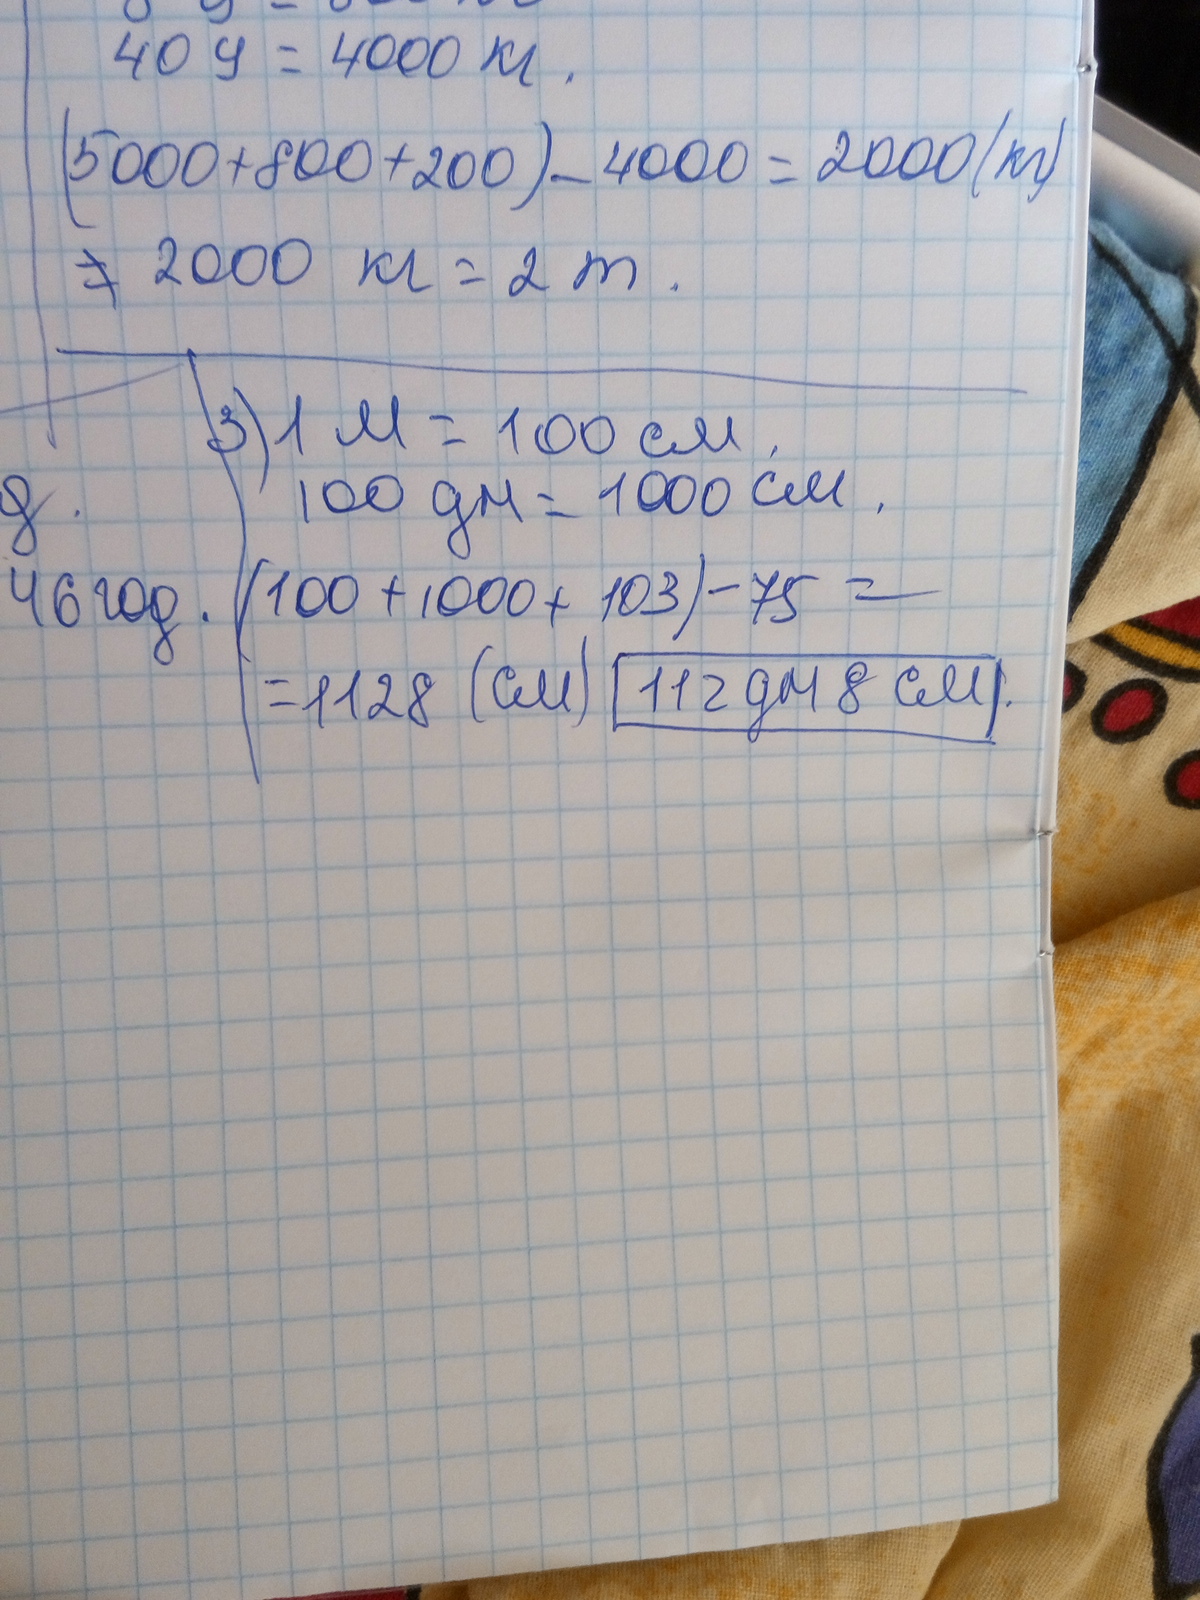 40 ц = 4000 кг.
(5000+800+200)-4000=2000(кг)
2000 кг = 2 т.
3) 1 м = 100 см.
100 дм = 1000 см.
д.
46 год.
(100+1000+103)-75=
=1128 (см) 112 дм 8 см.